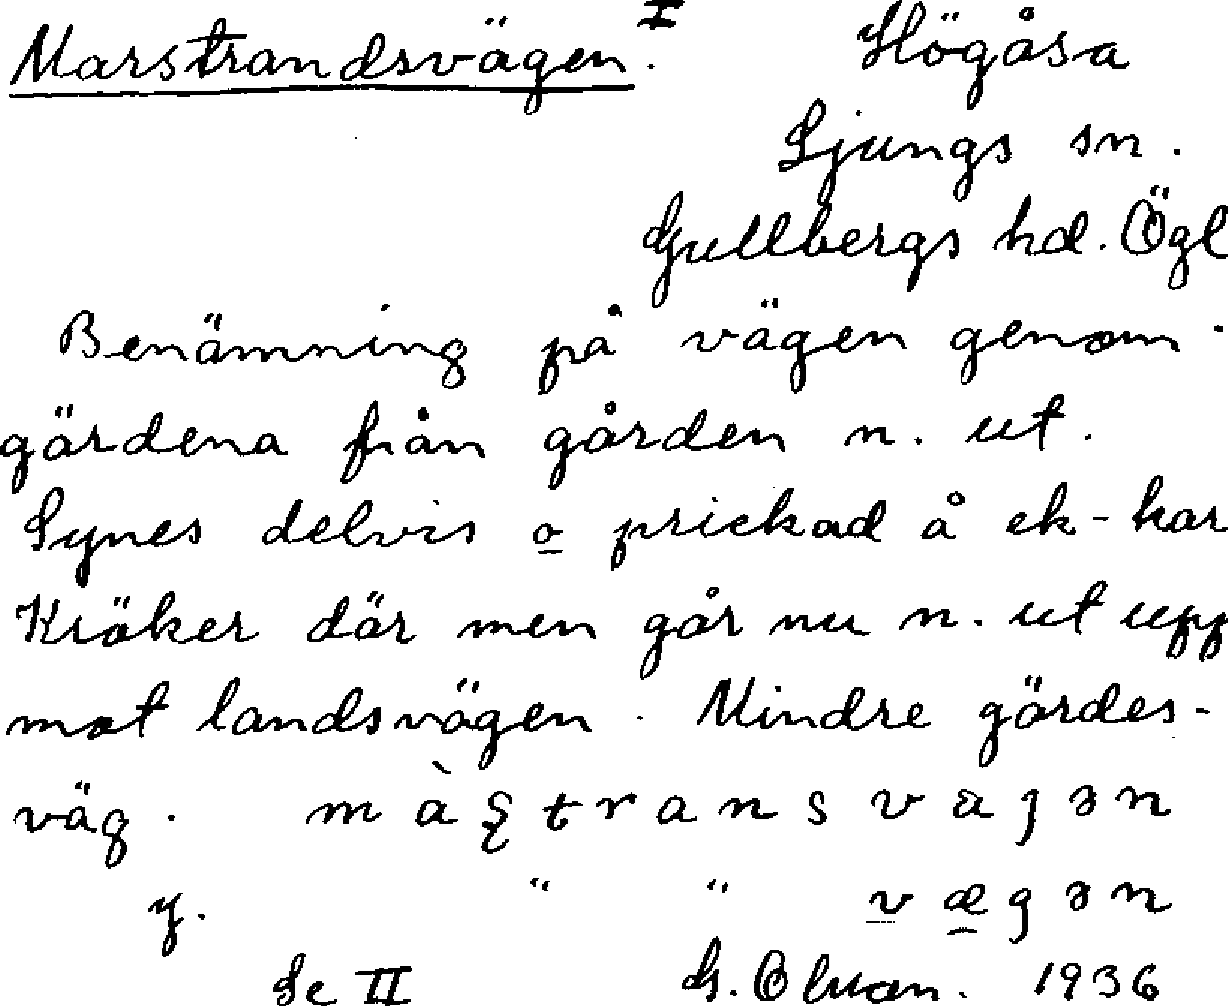 Marstrandsvägen. I Högåsa
Ljungs sn.
Gullbergs hd. Ögl
Benämning på vägen genom
gärdena från gården n. ut.
Synes delvis o prickad å ek-kar
Kröker där men går nu n. ut upp
mot landsvägen. Mindre gärdes-
väg. màʂtransvagən
y. " " vægən
Se II G. Olson. 1936